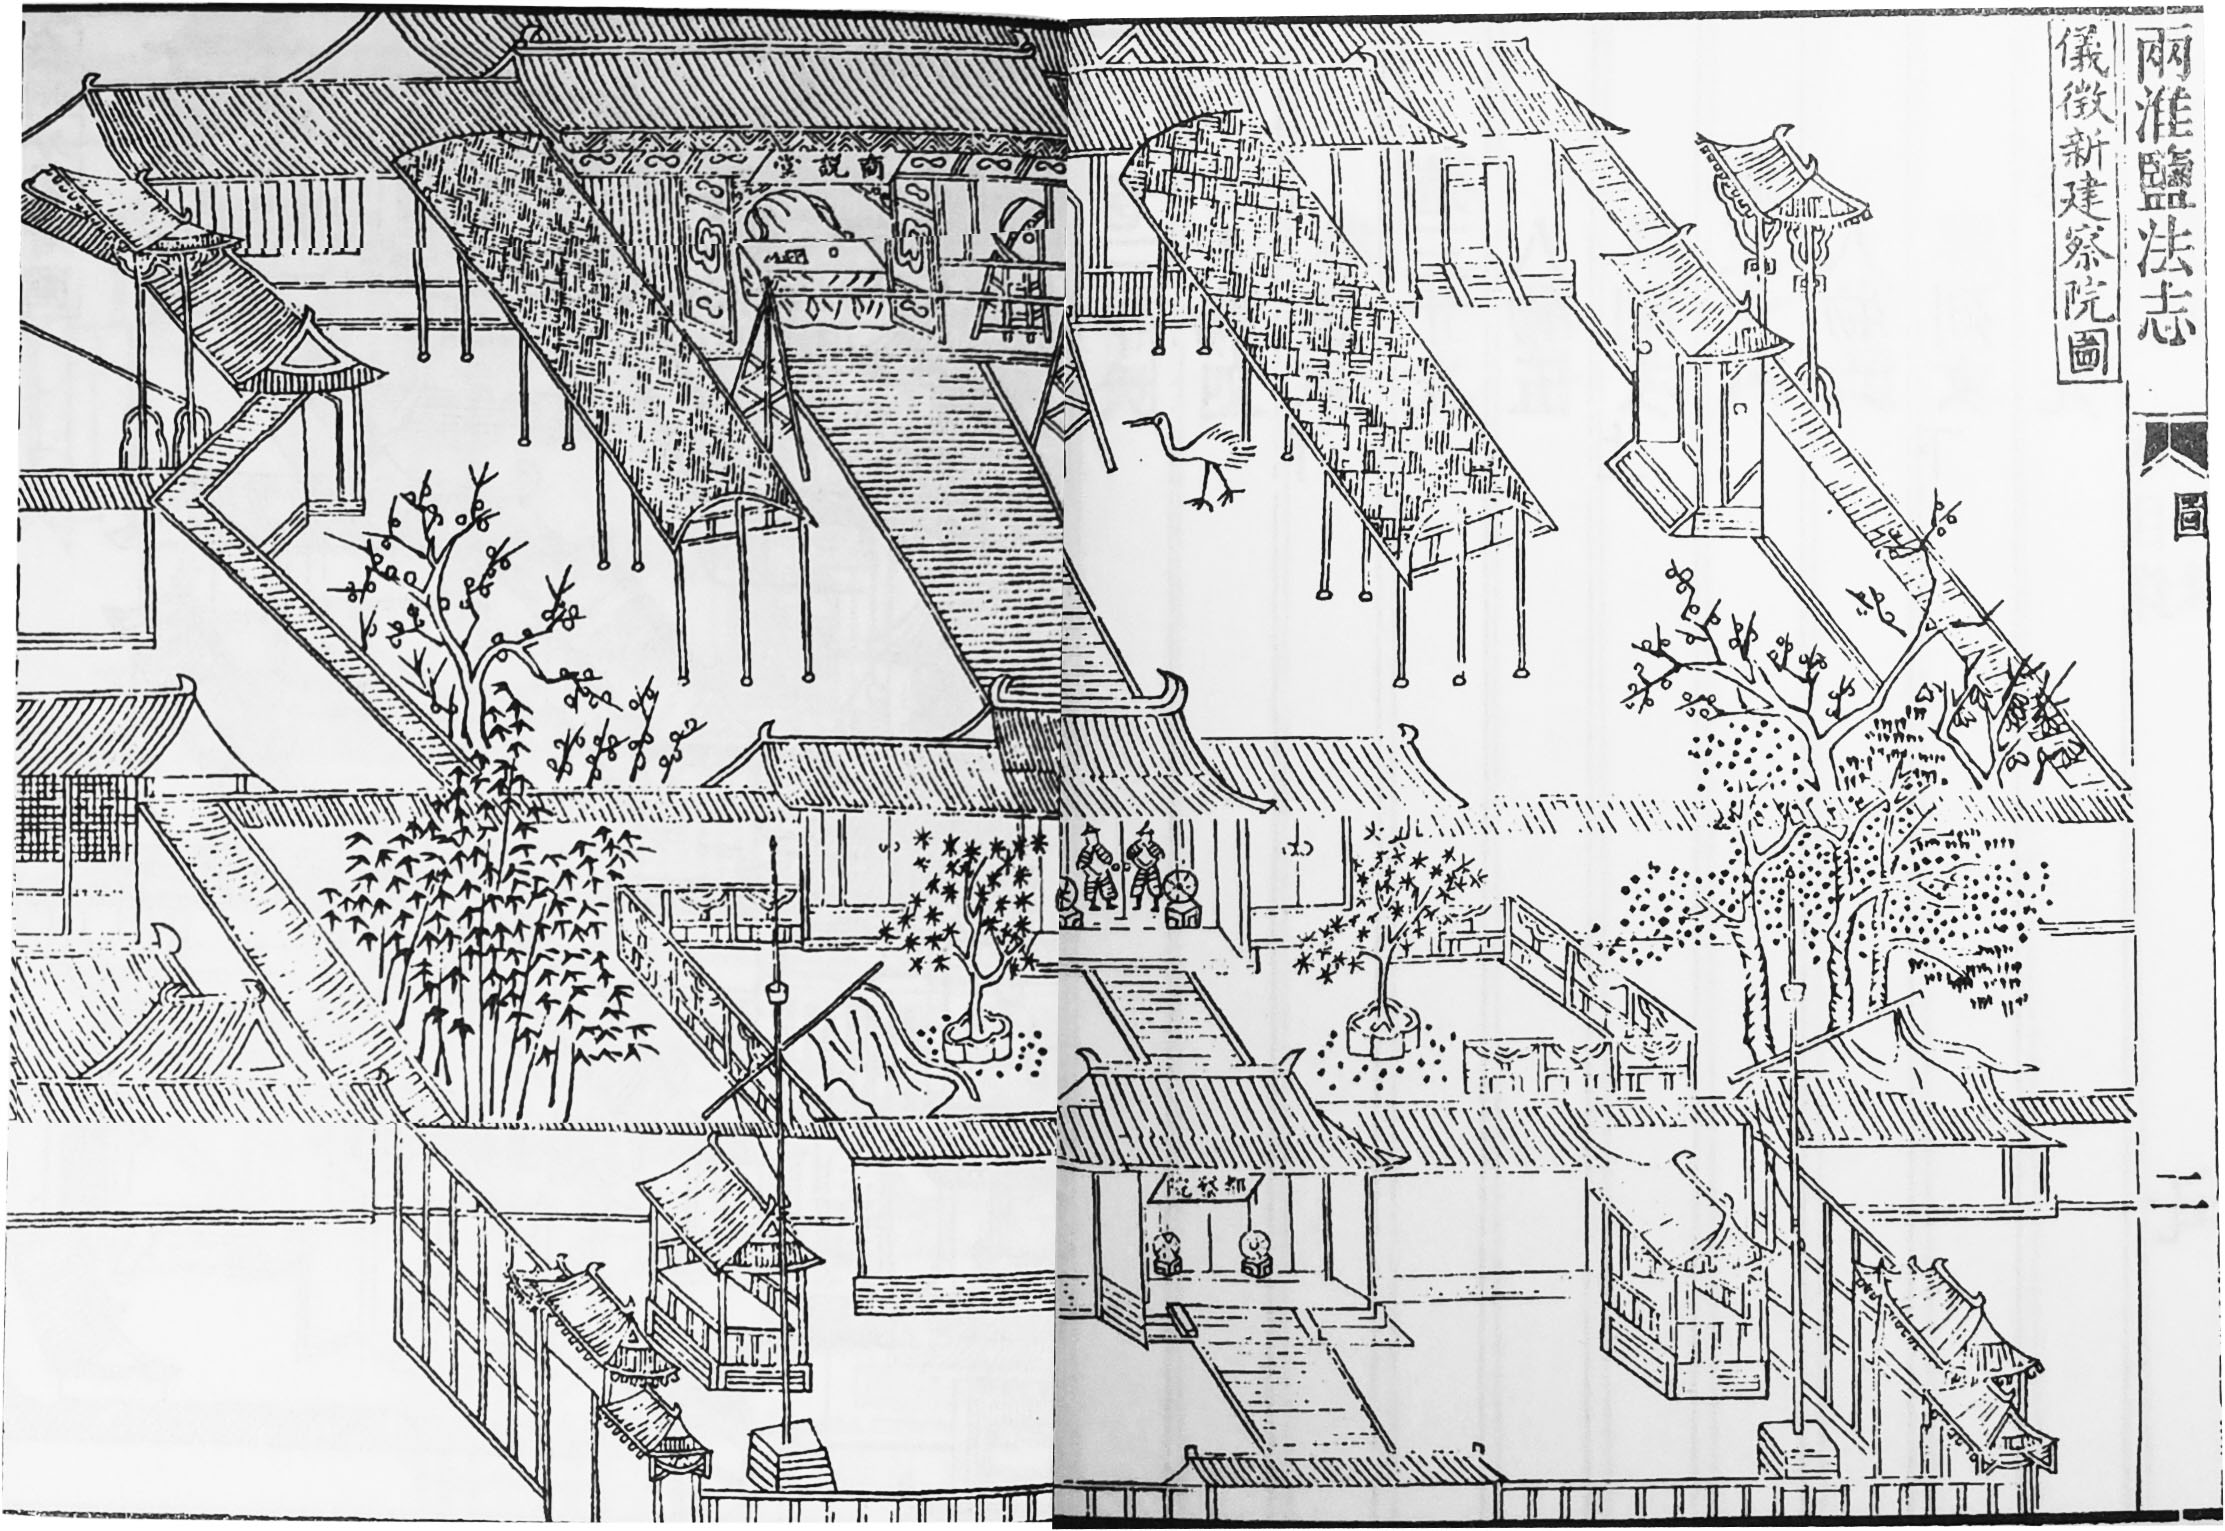 兩淮鹽法志
圖
二
儀徵新建察院圖
商說堂
都察院